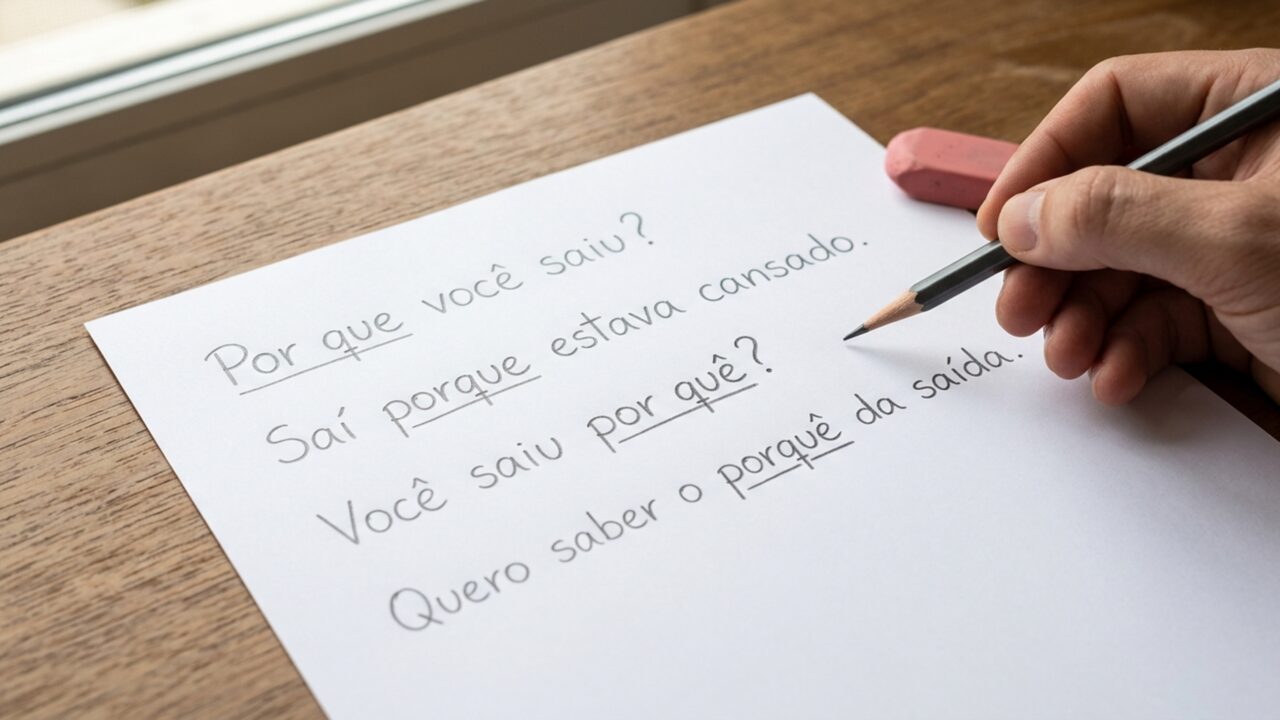 Por que você saiu?
Saí porque estava cansado.
Você saiu por quê?
Quero saber o porquê da saída.